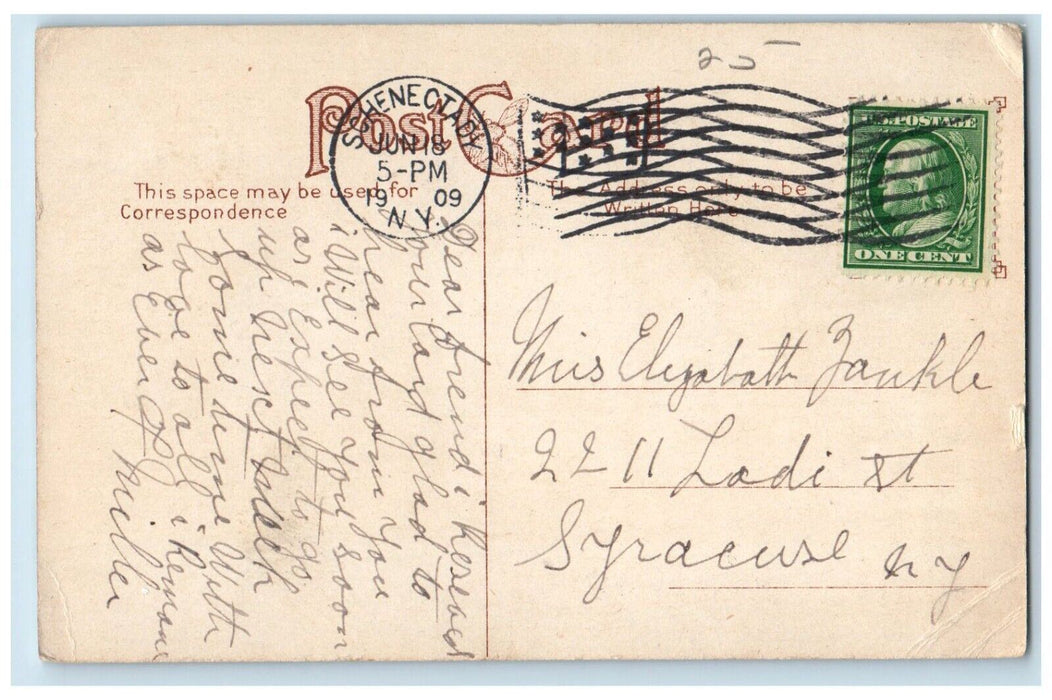 25
Post Card
SCHENECTADY
JUN 18
5-PM
19 09
N.Y.
U.S. POSTAGE
ONE CENT
This space may be used for
Correspondence
The Address only to be
Written Here
Dear friend i Reseved
your Card glad to
hear from you
i Will see you soon
as i Expect to go
up Next Week
Some time With
love to all i Remain
as Ever
Miller
Miss Elizabath Zankle
2211 Lodi st
Syracuse NY